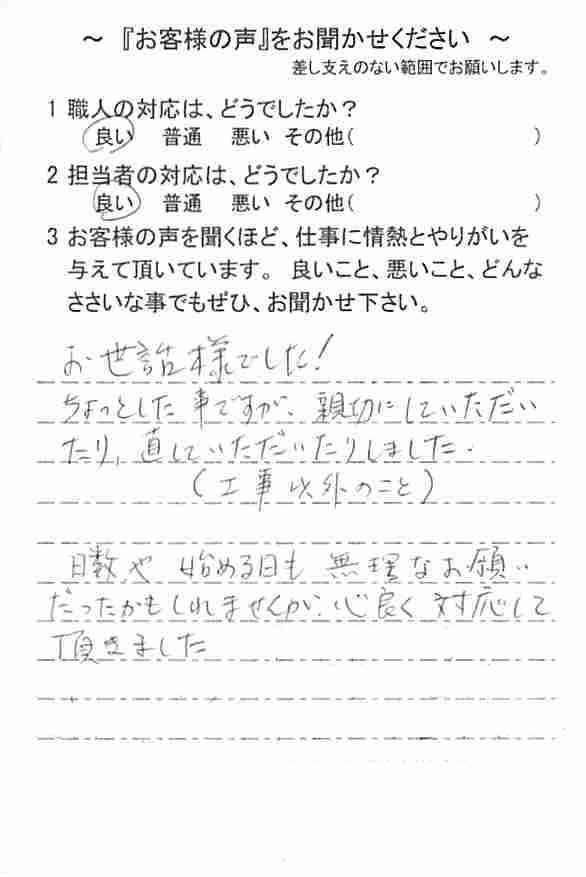 ～ 『お客様の声』をお聞かせください ～
差し支えのない範囲でお願いします。
1 職人の対応は、どうでしたか？
良い 普通 悪い その他( )
2 担当者の対応は、どうでしたか？
良い 普通 悪い その他( )
3 お客様の声を聞くほど、仕事に情熱とやりがいを
与えて頂いています。 良いこと、悪いこと、どんな
ささいな事でもぜひ、お聞かせ下さい。
お世話様でした!
ちょっとした事ですが、親切にしていただい
たり、直していただいたりしました.
(工事以外のこと)
日数や 始める日も 無理なお願い
だったかもしれませんが、心良く 対応して
頂きました